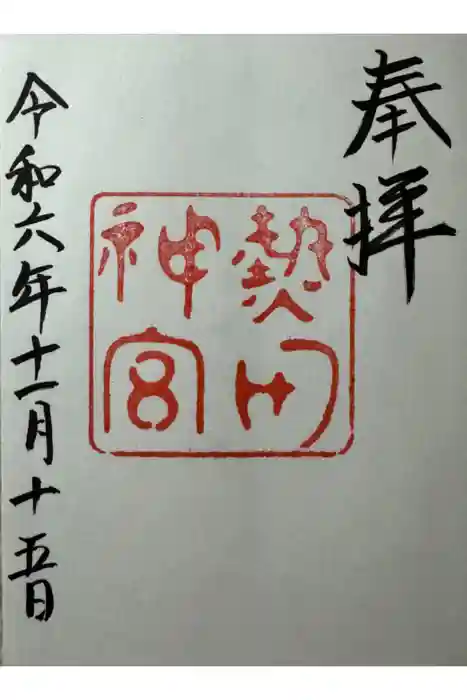 奉拝
熱田
神宮
令和六年十一月十五日